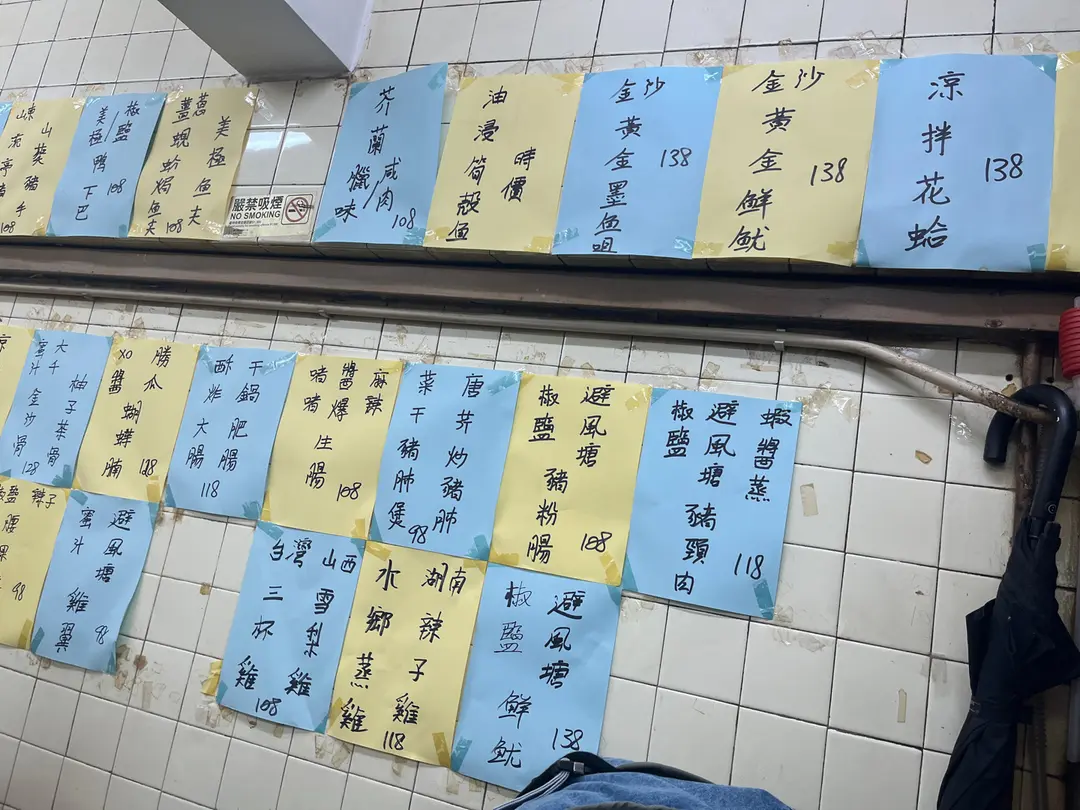 椒鹽/
美極鴨下巴
108
美極魚夫
薑蔥
蜆蚧焗魚夫
108
嚴禁吸煙
NO SMOKING
芥蘭
咸肉/
臘味
108
時價
油浸筍殼魚
金沙
黃金墨魚咀
138
金沙
黃金鮮魷
138
涼拌花蛤
138
大千
柚子茶骨
蜜汁金沙骨
128
勝瓜
XO醬蝴蝶腩
138
干鍋肥腸
酥炸大腸
118
麻辣
醬爆
啫啫生腸
108
唐芥炒豬肺
菜干豬肺煲
98
避風塘
椒鹽
豬粉腸
108
蝦醬蒸
避風塘
椒鹽
豬頸肉
118
98
避風塘
蜜汁
雞翼
98
山西雪梨雞
台灣三杯雞
108
湖南辣子雞
水鄉蒸雞
118
避風塘
椒鹽
鮮魷
138